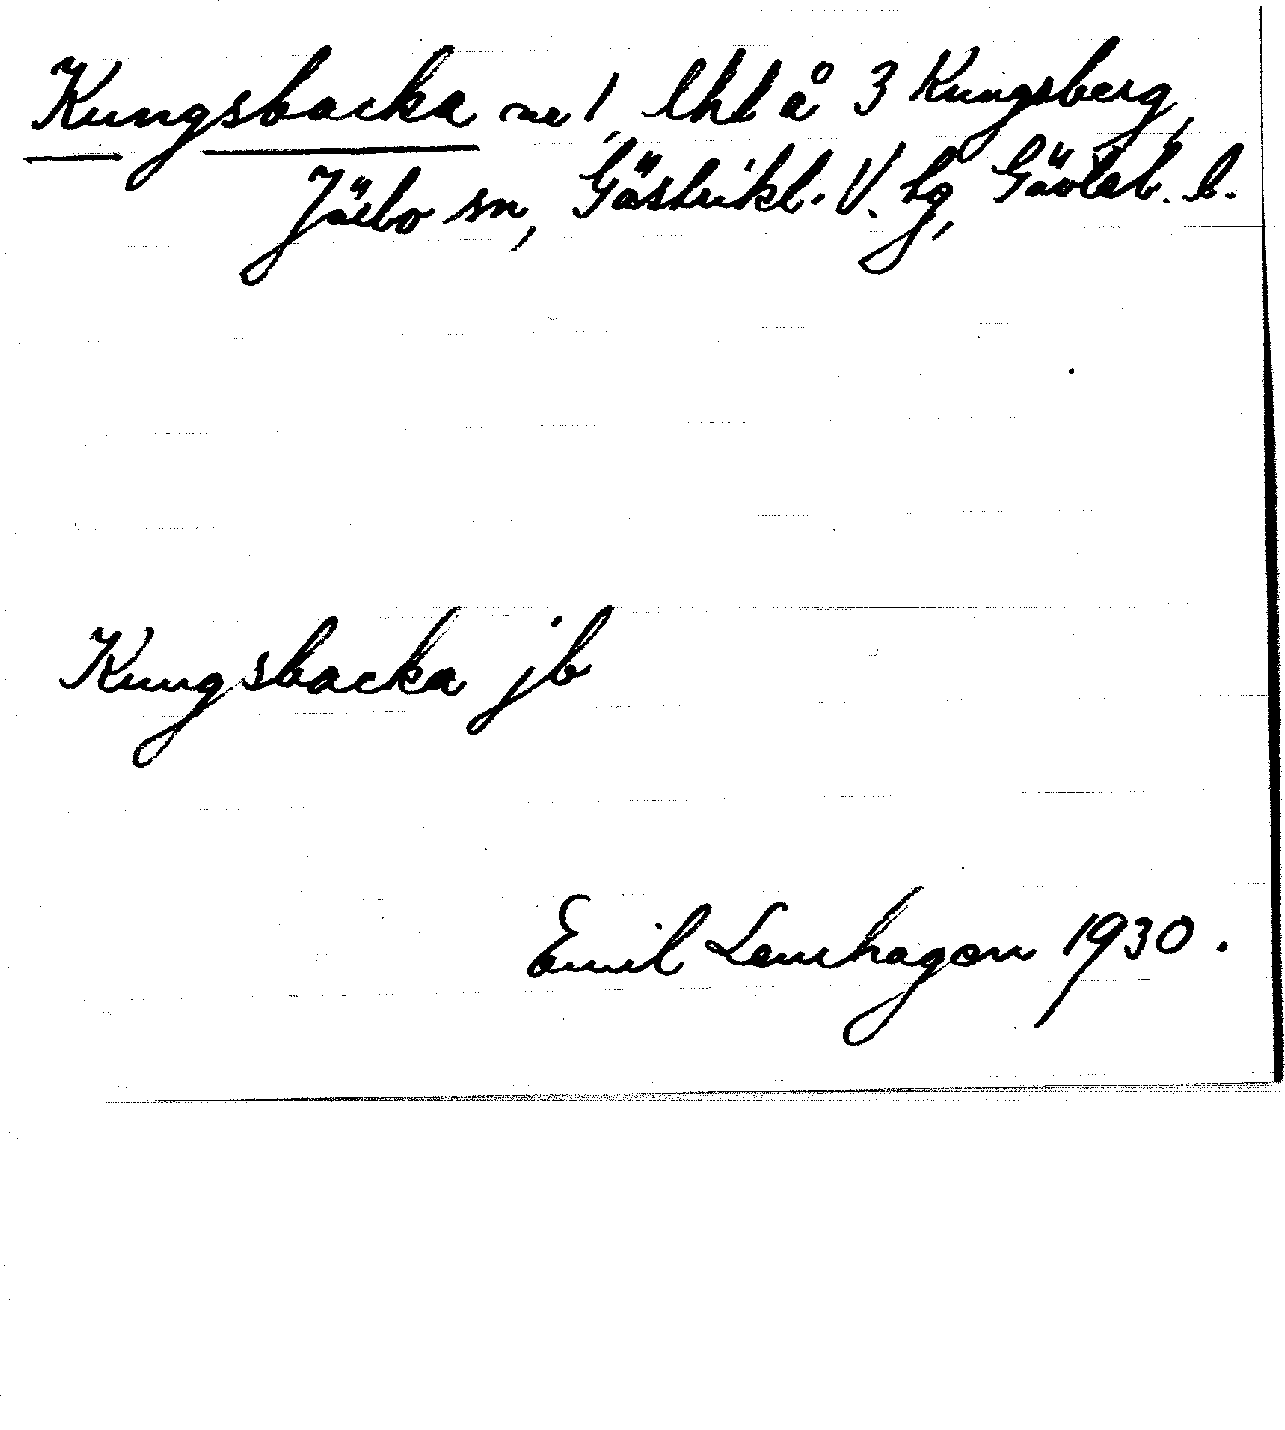 Kungsbacka nr 1, lht å 3 Kungsberg,
Järbo sn, Gästrikl. V. hg, Gävleb. l.
Kungsbacka jb
Emil Lenhagen 1930.